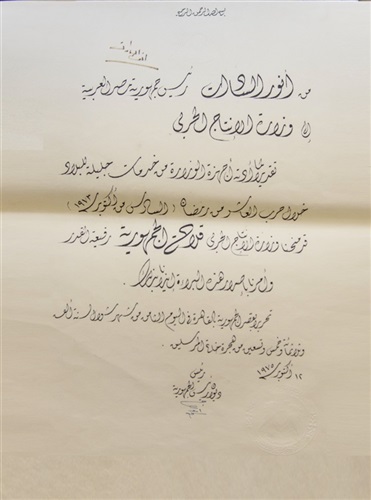 بسم الله الرحمن الرحيم
من أنور السادات رئيس جمهورية مصر العربية
إلى وزارة الإنتاج الحربي
تقديرًا لما أدته أجهزة الوزارة من خدمات جليلة للبلاد
خلال حرب العاشر من رمضان (السادس من أكتوبر ١٩٧٣)
قد منحنا وزارة الإنتاج الحربي قلادة الجمهورية رفيعة القدر
وأمرنا بإصدار هذه البراءة إيذانًا بذلك
تحريرًا بقصر الجمهورية بالقاهرة في اليوم الثامن من شهر شوال سنة ألف
وثلاثمائة وخمس وتسعين من هجرة خاتم المرسلين
١٢ أكتوبر ١٩٧٥
رئيس
ديوان رئيس الجمهورية